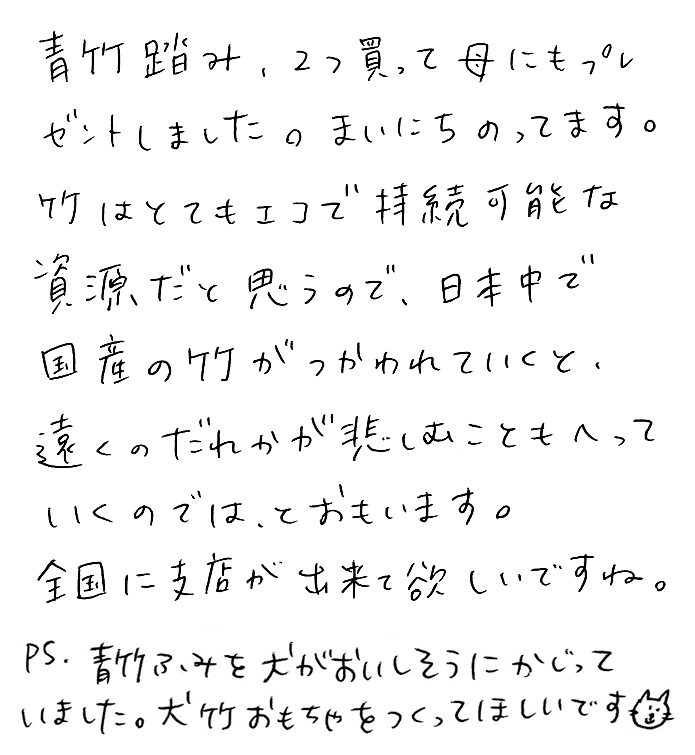 青竹踏み、2つ買って母にもプレ
ゼントしました。まいにちのってます。
竹はとてもエコで持続可能な
資源だと思うので、日本中で
国産の竹がつかわれていくと、
遠くのだれかが悲しむこともへって
いくのでは、とおもいます。
全国に支店が出来て欲しいですね。
PS. 青竹ふみを犬がおいしそうにかじって
いました。犬竹おもちゃをつくってほしいです